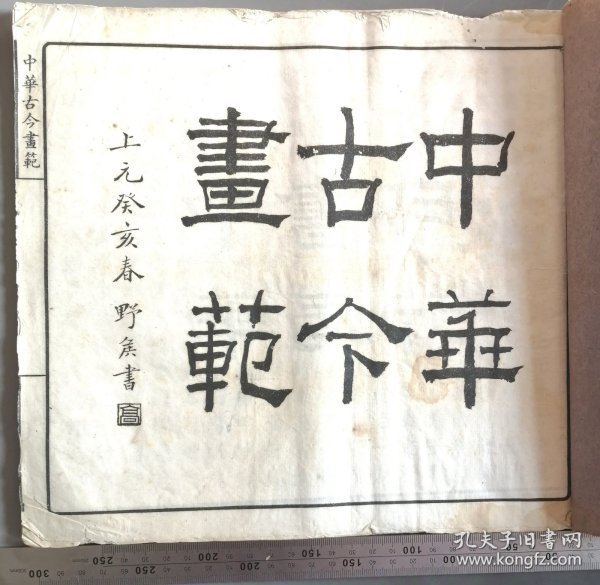 中華
古今
畫範
上元癸亥春野矦書
高
中華古今畫範
孔夫子旧书网
www.kongfz.com
300 250 200 150 100 50